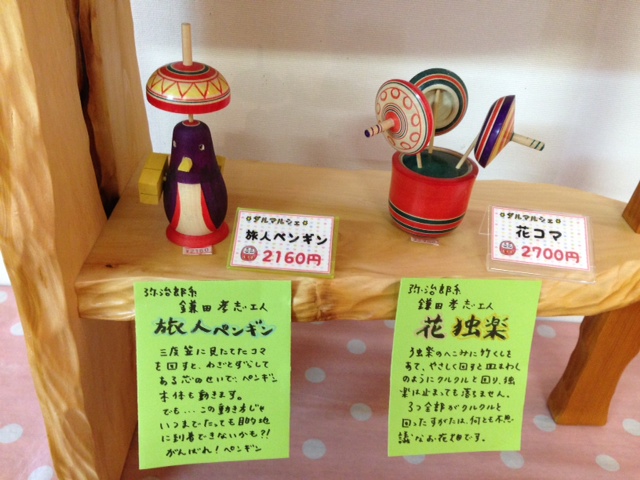 ダルマルシェ
旅人ペンギン
2160円
ダルマルシェ
花コマ
2700円
弥治郎系
鎌田孝志・工人
旅人ペンギン
三度笠に見たてたコマ
を回すと、わざとずらして
ある芯のせいで、ペンギン
本体も動きます。
でも…この動き方じゃ
いつまでたっても目的地
に到着できないかも?!
がんばれ!ペンギン
弥治郎系
鎌田孝志・工人
花独楽
独楽のへこみに竹くしを
あて、やさしく回すと皿まわし
のようにクルクルと回り、独
楽は止まっても落ちません。
3つ全部がクルクルと
回ったすがたは、何とも不思
議なお花畑です。